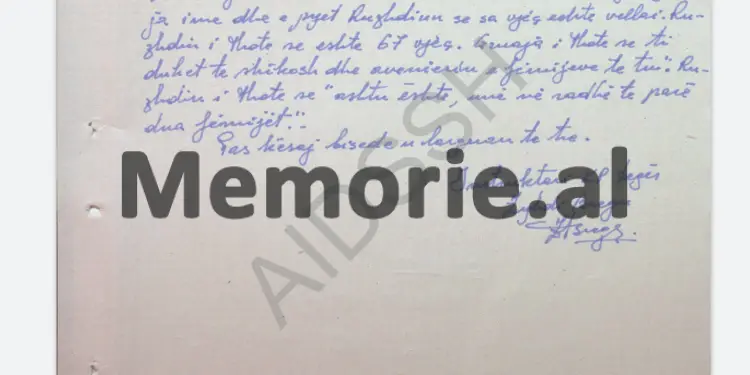 ja ime dhe e pyet Ruzhdiun se sa vjeç eshte vellai. Ru-
zhdiu i thote se eshte 67 vjeç. Gruaja i thote se ti
duhet te shikosh dhe avenierin e femijeve te tu". Ru-
zhdiu i thote se "ashtu është, unë në radhë të parë
dua fëmijët".
Pas kësaj bisede u larguan te tre.
Memorie.al
AIDSSH